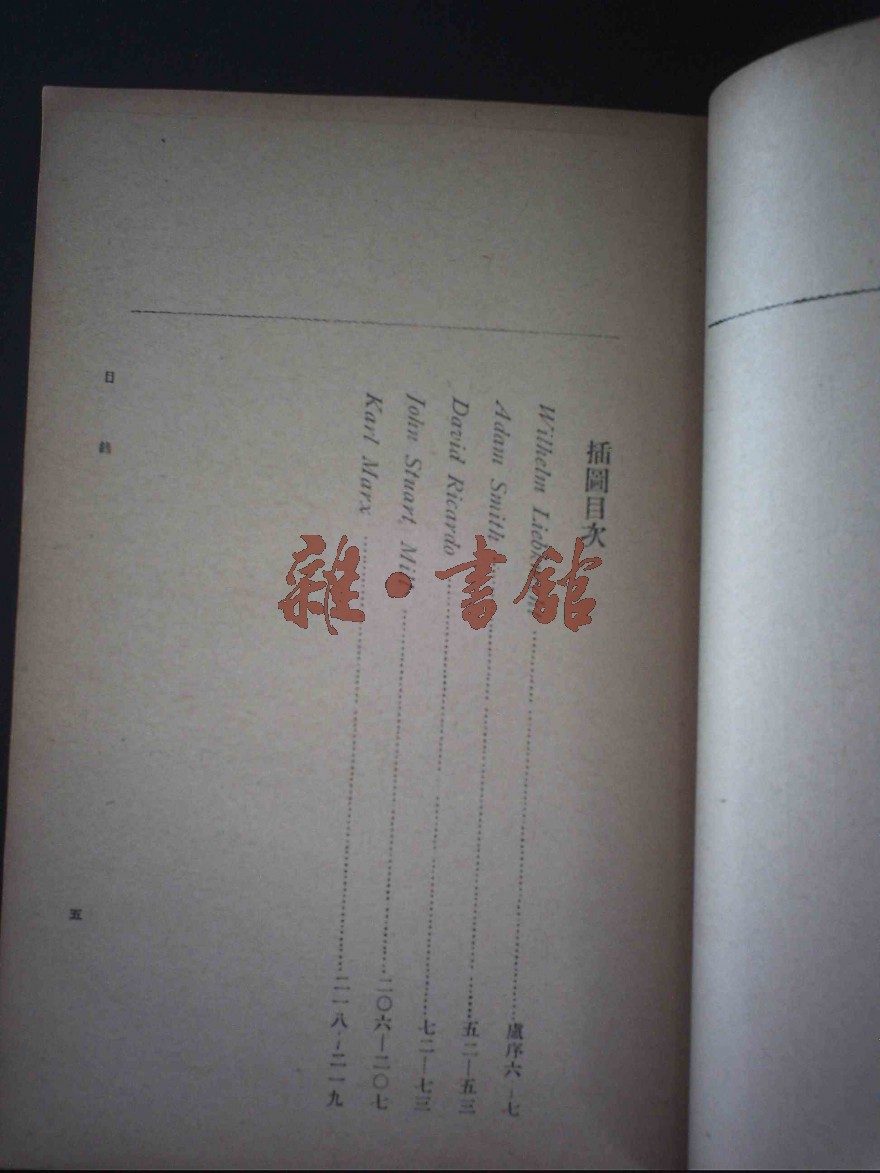 插圖目次
Wilhelm ⋯⋯⋯⋯ 盧序六—七
Adam Smith ⋯⋯⋯⋯ 五二—五三
David Ricardo ⋯⋯⋯⋯ 七二—七三
John Stuart, Mill ⋯⋯⋯⋯ 二〇六—二〇七
Karl Marx ⋯⋯⋯⋯ 二一八—二一九
目錄
五
雜·書館